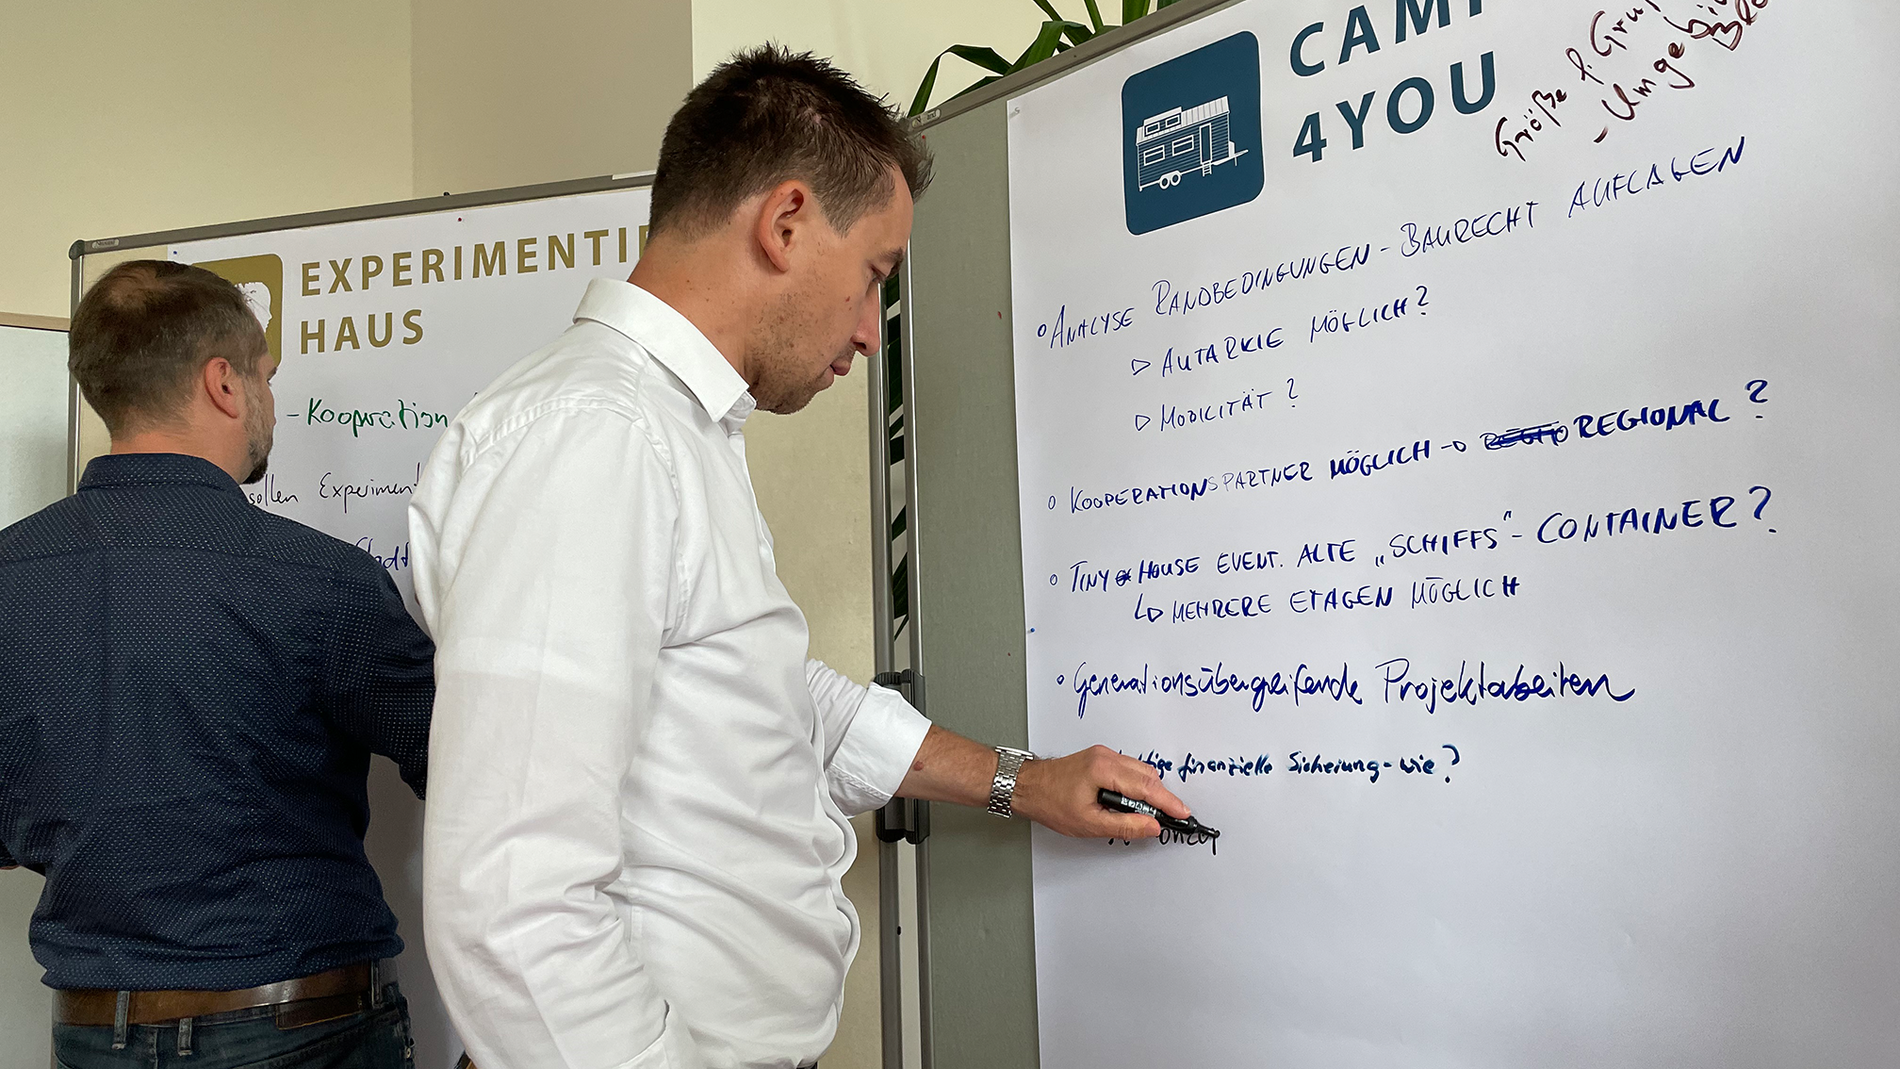 EXPERIMENTI
HAUS
- Kooperation
sollen Experiment
Stadt
CAMP
4YOU
Größe f. Grup
- Umgebu
° ANALYSE RANDBEDINGUNGEN - BAURECHT AUFLAGEN
▷ AUTARKIE MÖGLICH?
▷ MOBILITÄT?
° KOOPERATIONSPARTNER MÖGLICH → REGIONAL?
° TINY HOUSE EVENT. ALTE „SCHIFFS"-CONTAINER?
↳ MEHRERE ETAGEN MÖGLICH
° Generationsübergreifende Projektarbeiten
finanzielle Sicherung - wie?